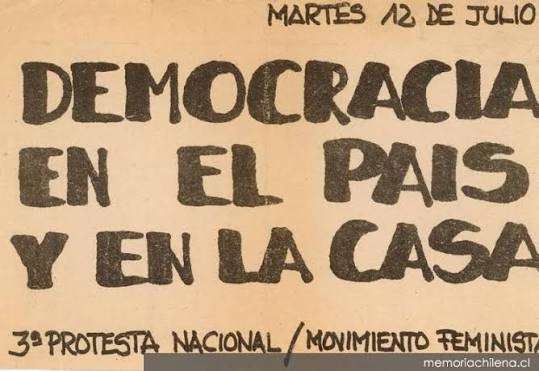 MARTES 12 DE JULIO
DEMOCRACIA
EN EL PAIS
Y EN LA CASA
3ª PROTESTA NACIONAL / MOVIMIENTO FEMINISTA
memoriachilena.cl